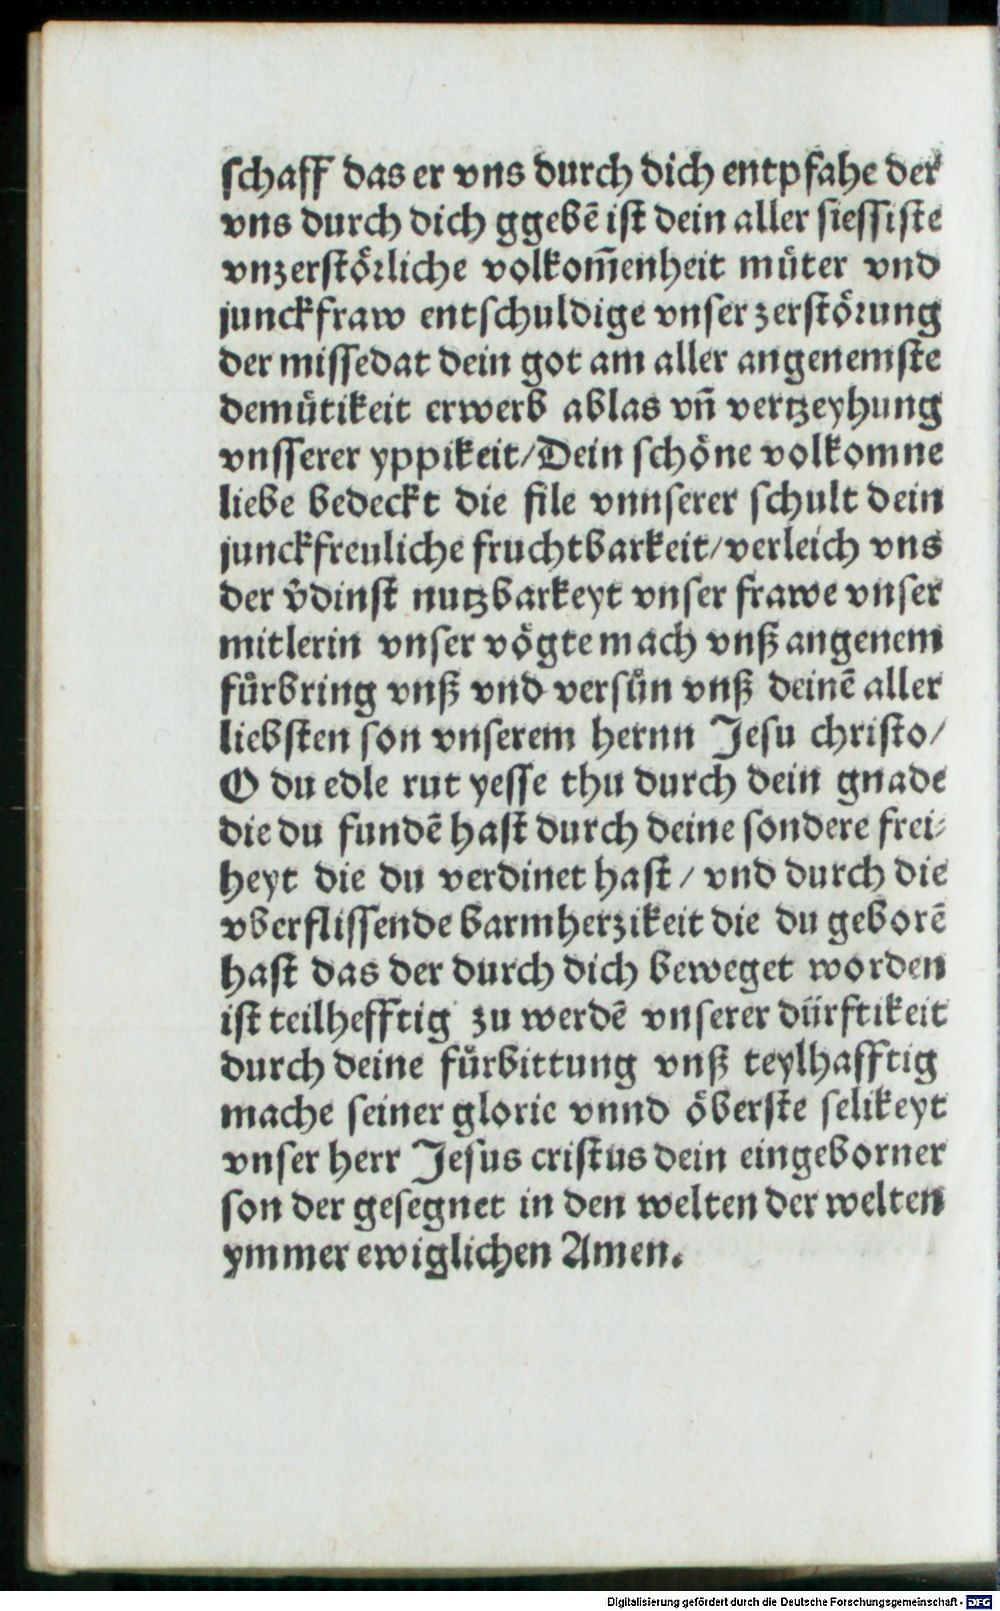 schaff das er vns durch dich entpfahe der
vns durch dich ggebē ist dein aller siessiste
vnzerstörliche volkom̄enheit můter vnd
junckfraw entschuldige vnser zerstörung
der missedat dein got am aller angenemste
demůtikeit erwerb ablas vn̄ vertzeyhung
vnsserer yppikeit/Dein schöne volkomne
liebe bedeckt die file vnnserer schult dein
junckfreuliche fruchtbarkeit/verleich vns
der v̄dinst nutzbarkeyt vnser frawe vnser
mitlerin vnser vögte mach vnß angenem
fürbring vnß vnd versün vnß deinē aller
liebsten son vnserem hernn Jesu christo/
O du edle rut yesse thu durch dein gnade
die du fundē hast durch deine sondere frei⸗
heyt die du verdinet hast / vnd durch die
vberflissende barmherzikeit die du geborē
hast das der durch dich beweget worden
ist teilhefftig zu werdē vnserer dürftikeit
durch deine fürbittung vnß teylhafftig
mache seiner glorie vnnd öberste selikeyt
vnser herr Jesus cristus dein eingeborner
son der gesegnet in den welten der welten
ymmer ewiglichen Amen.
Digitalisierung gefördert durch die Deutsche Forschungsgemeinschaft - DFG